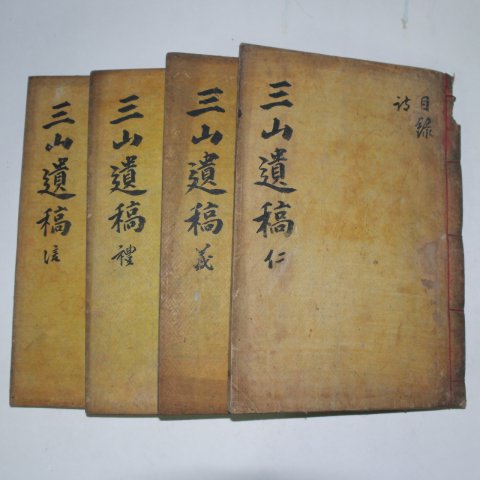 目錄
詩
三山遺稿 仁
三山遺稿 義
三山遺稿 禮
三山遺稿 信